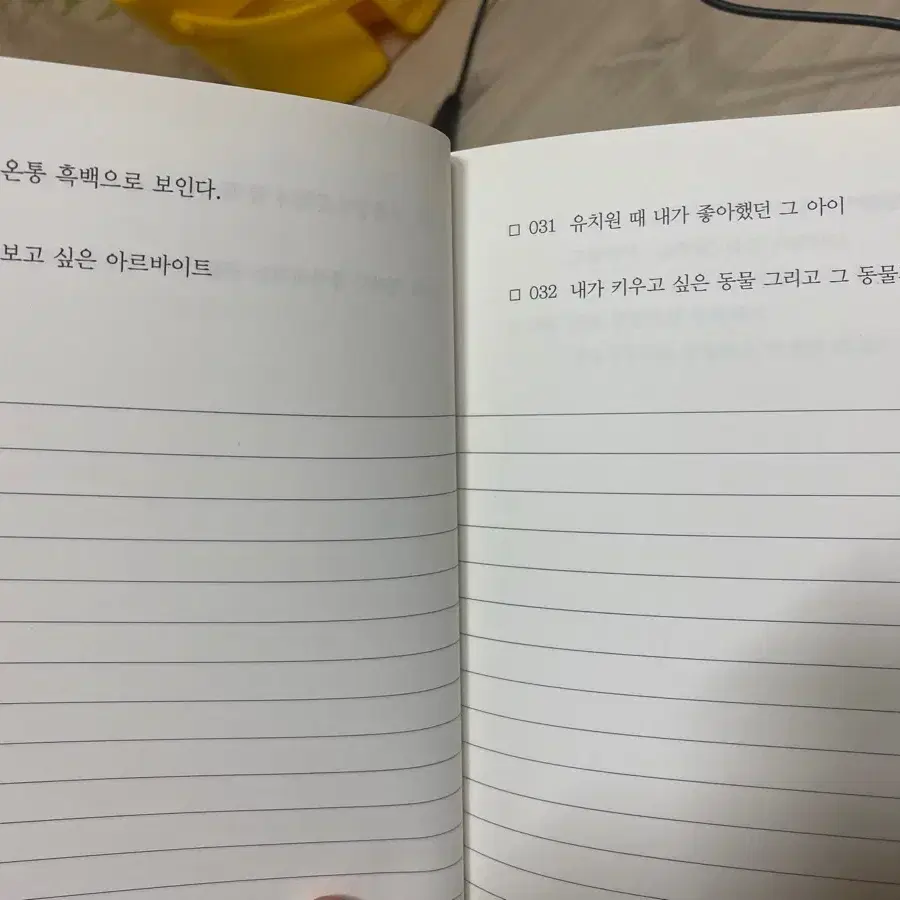 온통 흑백으로 보인다.
보고 싶은 아르바이트
□ 031 유치원 때 내가 좋아했던 그 아이
□ 032 내가 키우고 싶은 동물 그리고 그 동물